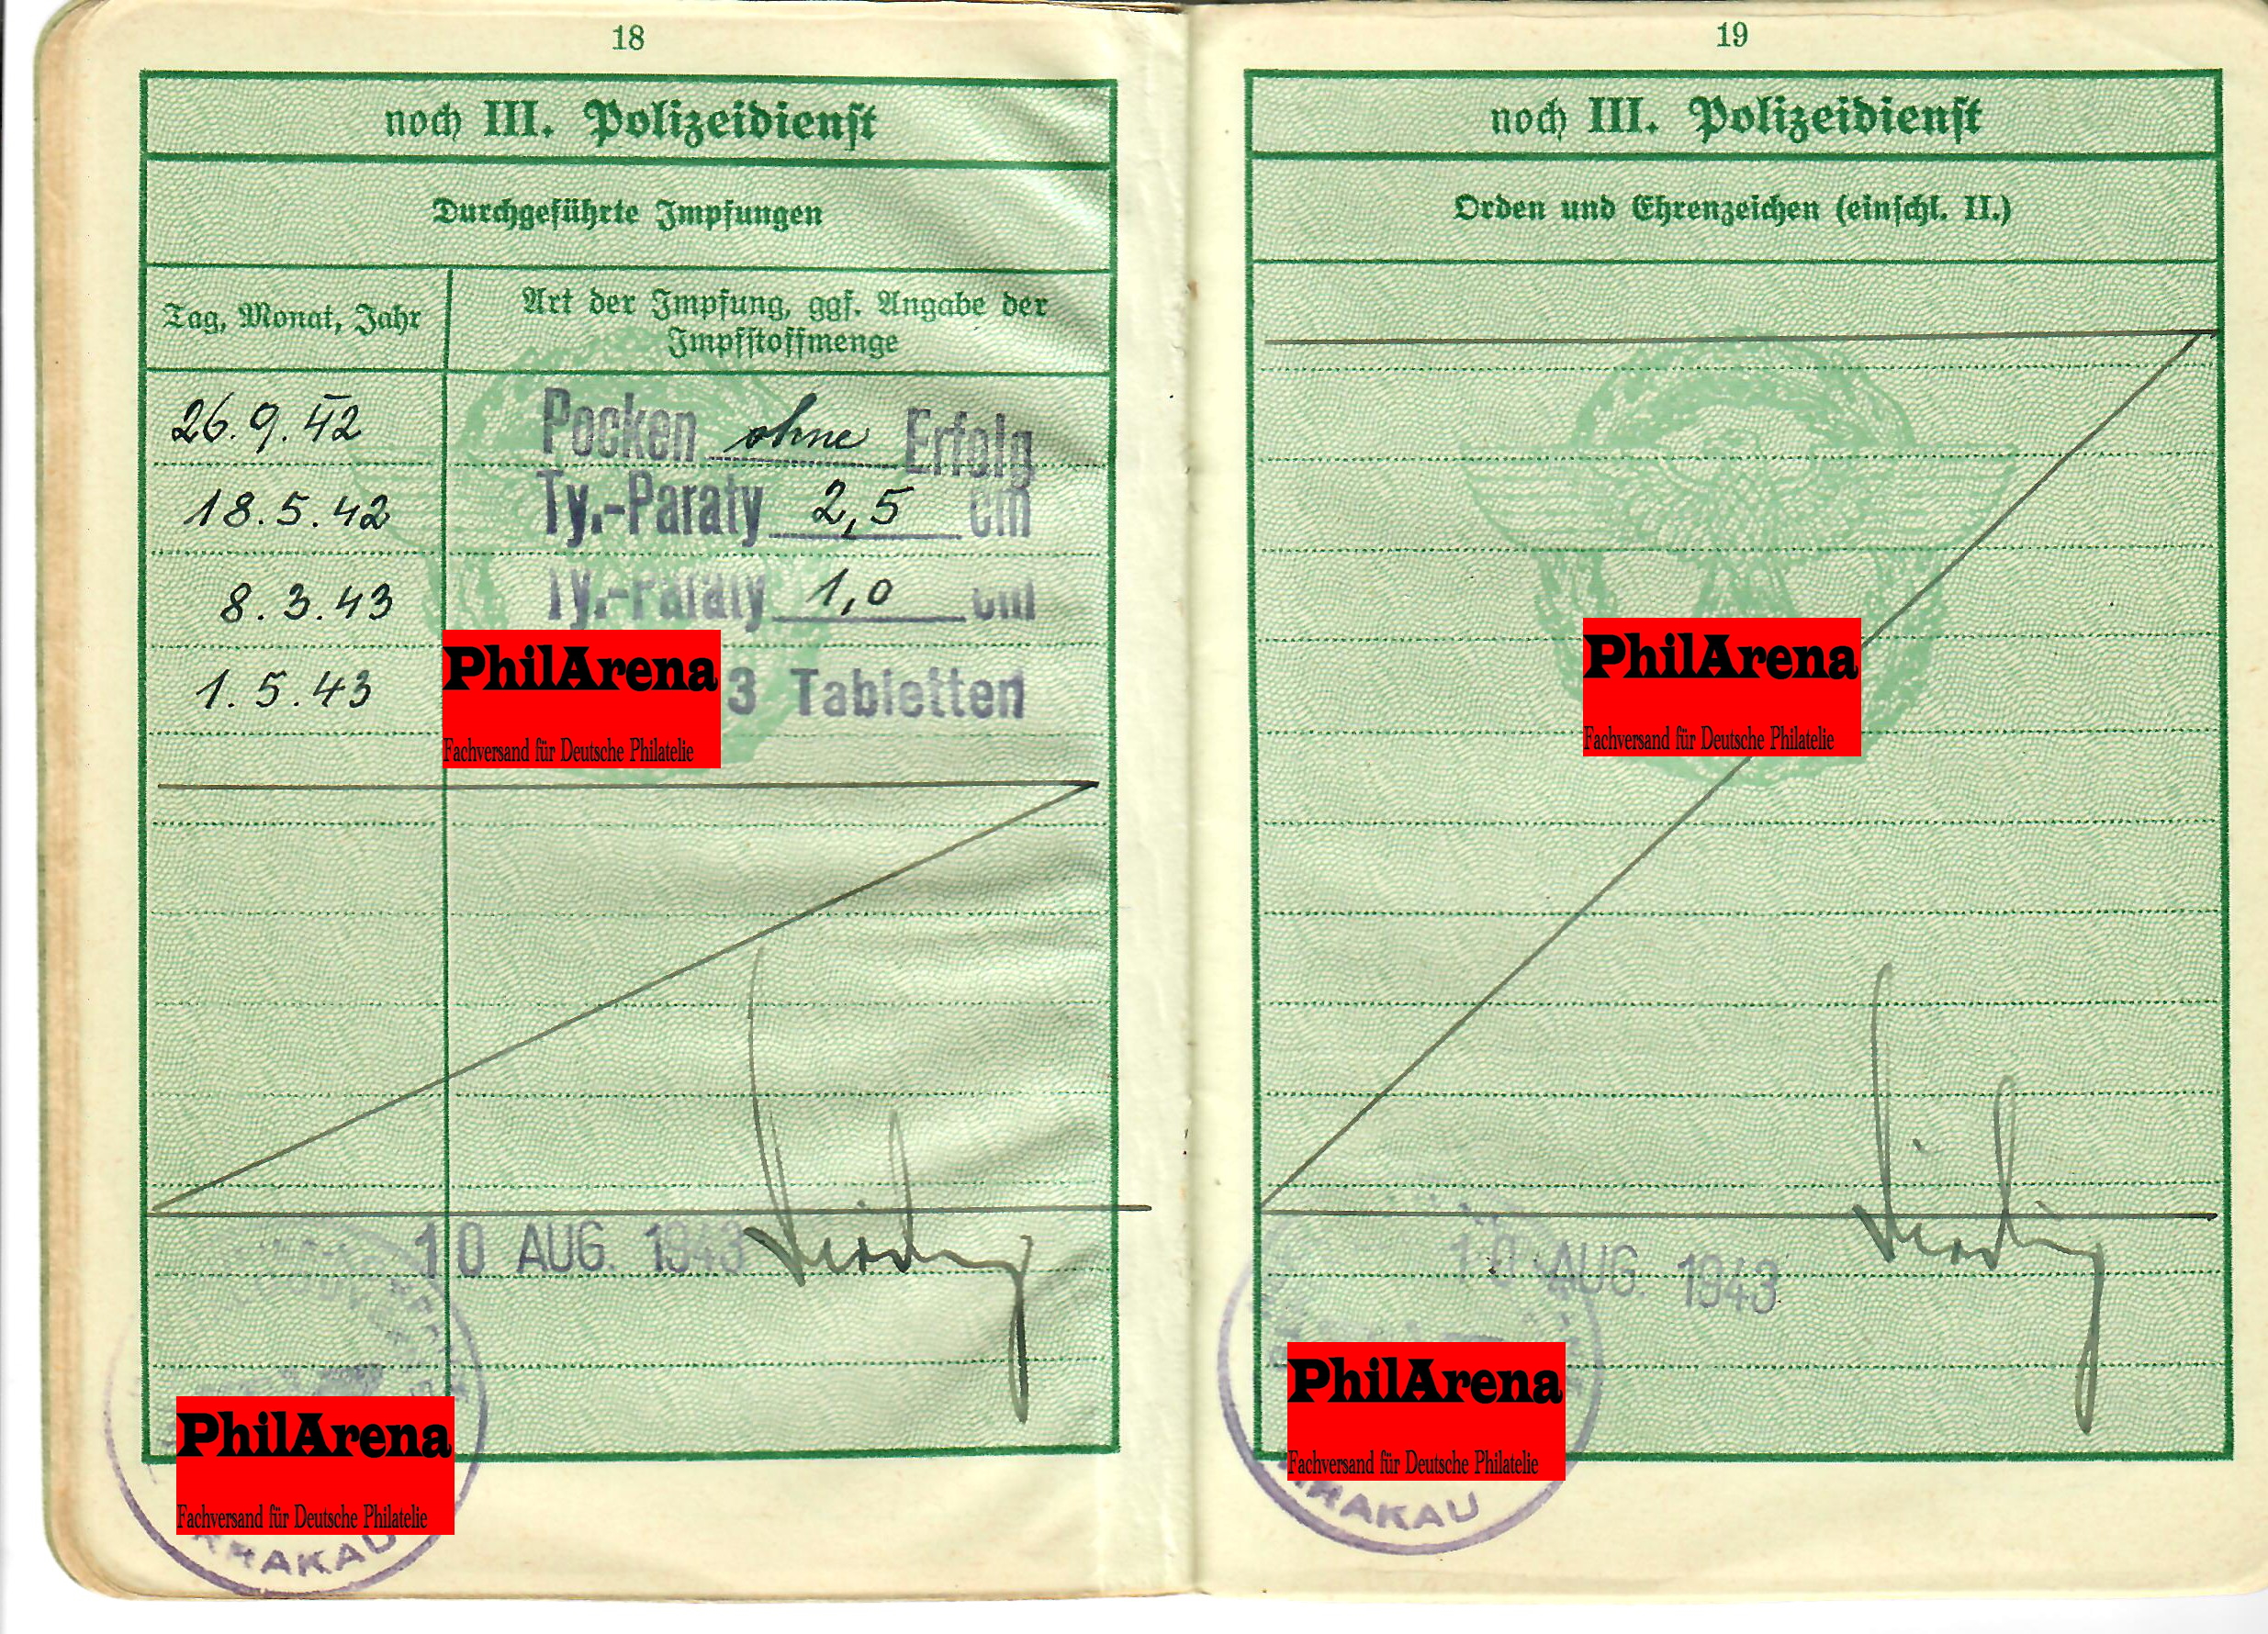 18
noch III. Polizeidienst
Durchgeführte Impfungen
Tag, Monat, Jahr
Art der Impfung, ggf. Angabe der
Impfstoffmenge
26.9.42 Pocken ohne Erfolg
18.5.42 Ty.-Paraty 2,5 cm
8.3.43 Ty.-Paraty 1,0 cm
1.5.43 3 Tabletten
PhilArena
Fachversand für Deutsche Philatelie
10 AUG. 1943
PhilArena
Fachversand für Deutsche Philatelie
KRAKAU
19
noch III. Polizeidienst
Orden und Ehrenzeichen (einschl. II.)
PhilArena
Fachversand für Deutsche Philatelie
10 AUG. 1943
PhilArena
Fachversand für Deutsche Philatelie
KRAKAU